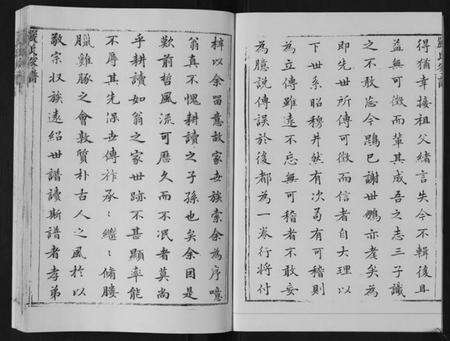 得猶幸接祖父緒言失今不輯後且
益無可徵而輩其成吾之志三子識
之不敢忘今鵾已謝世鵬亦耄矣為
即先世所傳可徵而信者自大理以
下世系昭穆井然有次苟有可稽則
為立傳雖遠不忘無可稽者不敢妄
為臆說傳誤於後都為一卷行將付
梓以余留意故家世族索余為序噫
翁真不愧耕讀之子孫也矣余因是
歎前哲風流可歷久而不泯者莫尚
乎耕讀如翁之家世跡不甚顯率能
不辱其先保世傳祚承繼備臘
臘雞豚之會敦質朴古人之風於以
敬宗收族遠紹世譜讀斯譜者孝弟
嚴氏家譜